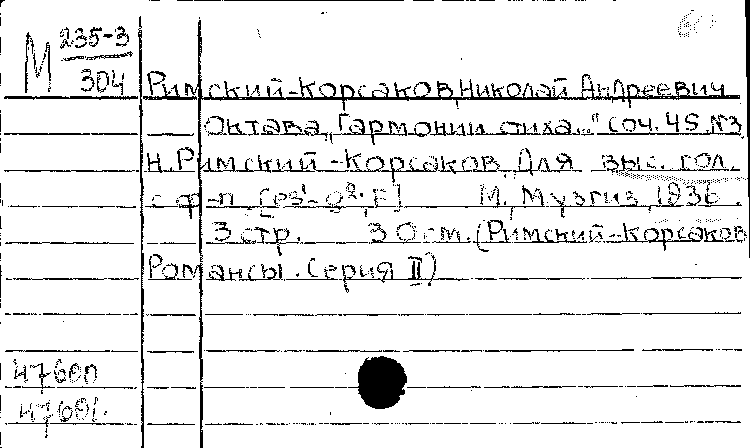 М 235-3
304
Римский-Корсаков, Николай Андреевич
Октава „Гармонии стиха..." Соч. 45 №3
Н. Римский-Корсаков. Для выс. гол.
с ф-п. [es¹-g²; F] М., Музгиз, 1936.
3 стр. 30 см. (Римский-Корсаков
Романсы. Серия II)